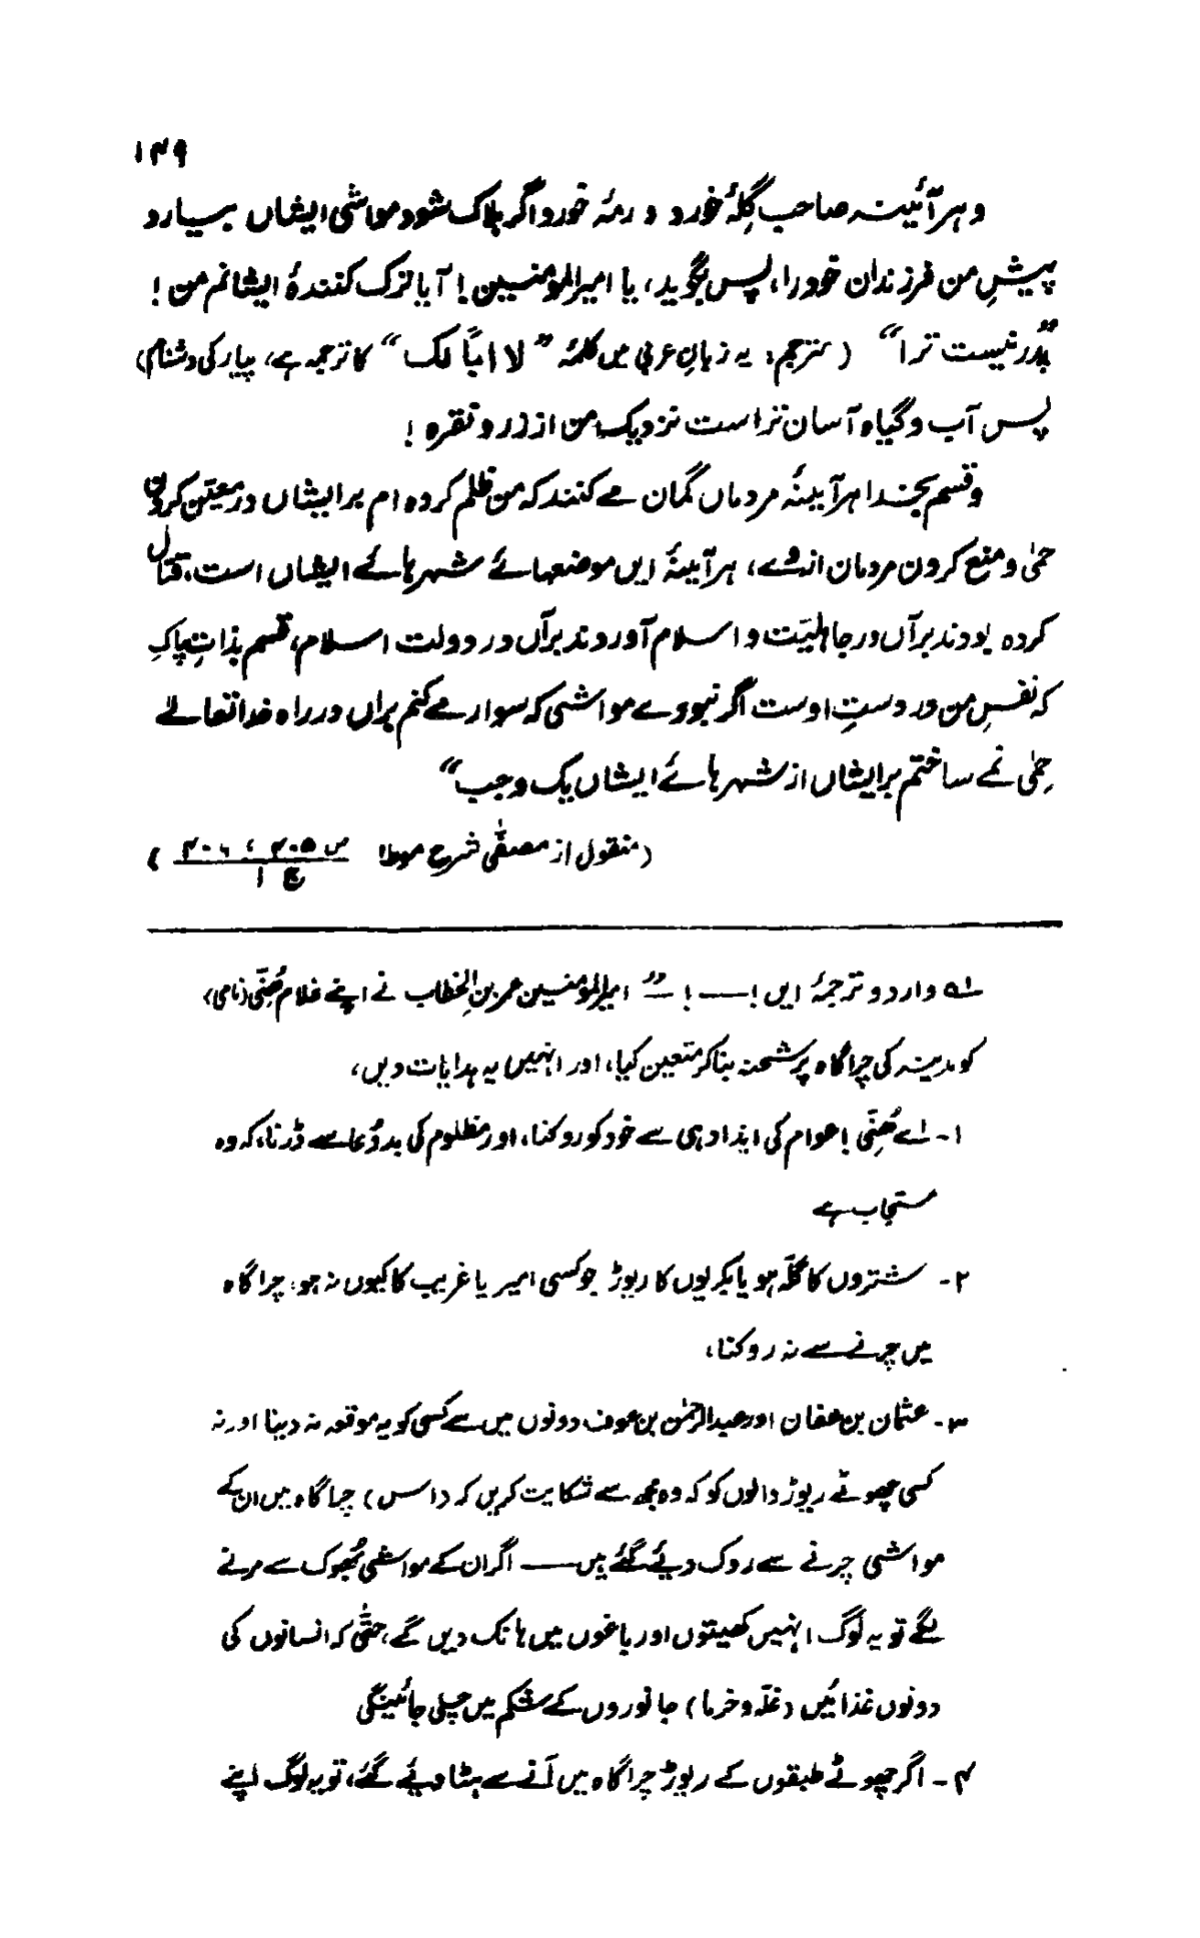 ۱۴۹
و ہر آئینہ صاحب گلۂ خورد و رمۂ خورد اگر ہلاک شود مواشی ایشاں بیارد
پیشِ من فرزندان خود را، پس بگوید، یا امیر المومنین! آیا ترک کنندۂ ایشانم من!
”پدر نیست ترا“ (مترجم: یہ زبانِ عربی میں کلمۂ ”لا اباً لک“ کا ترجمہ ہے، پیار کی دشنام)
پس آب و گیاہ آسان تر است نزدیک من از زر و نقرہ!
و قسم بخدا ہر آئینۂ مردماں گمان مے کنند کہ من ظلم کردہ ام بر ایشاں در معین کردن
حمٰی و منع کردن مردمان از وے، ہر آئینۂ ایں موضعہائے شہر ہائے ایشاں است، قتال
کردہ بودند برآں در جاہلیّت و اسلام آوردند برآں در دولت اسلام، قسم بذاتِ پاکِ
کہ نفسِ من در دستِ اوست اگر نبودے مواشی کہ سوار مے کنم براں در راہ خدا تعالےٰ
حِمٰی نمے ساختم بر ایشاں از شہر ہائے ایشاں یک وجب“
(منقول از مصفّٰی شرح موطا ص ۲۰۵، ۲۰۶ ج ۱)
لہ و اردو ترجمۂ ایں! ــــ! ــ ” امیر المومنین عمر بن الخطاب نے اپنے غلام ھُنَیّ (نامی)
کو مدینہ کی چراگاہ پر شحنہ بنا کر متعین کیا، اور انہیں یہ ہدایات دیں،
۱۔ اے ھُنَیّ! عوام کی ایذا دہی سے خود کو روکنا، اور مظلوم کی بددُعا سے ڈرنا، کہ وہ
مستجاب ہے
۲۔ شتروں کا گلّہ ہو یا بکریوں کا ریوڑ جو کسی امیر یا غریب کا کیوں نہ ہو، چراگاہ
میں چرنے سے نہ روکنا،
۳۔ عثمان بن عفان اور عبدالرحمٰن بن عوف دونوں میں سے کسی کو یہ موقعہ نہ دینا اور نہ
کسی چھوٹے ریوڑ والوں کو کہ وہ مجھ سے شکایت کریں کہ (اس) چراگاہ میں ان کے
مواشی چرنے سے روک دیئے گئے ہیں ــــ اگر ان کے مواشی بُھوک سے مرنے
لگے تو یہ لوگ انہیں کھیتوں اور باغوں میں ہانک دیں گے، حتّٰی کہ انسانوں کی
دونوں غذائیں (غلّہ و خرما) جانوروں کے شکم میں چلی جائینگی
۴۔ اگر چھوٹے طبقوں کے ریوڑ چراگاہ میں آنے سے ہٹا دیئے گئے، تو یہ لوگ اپنے